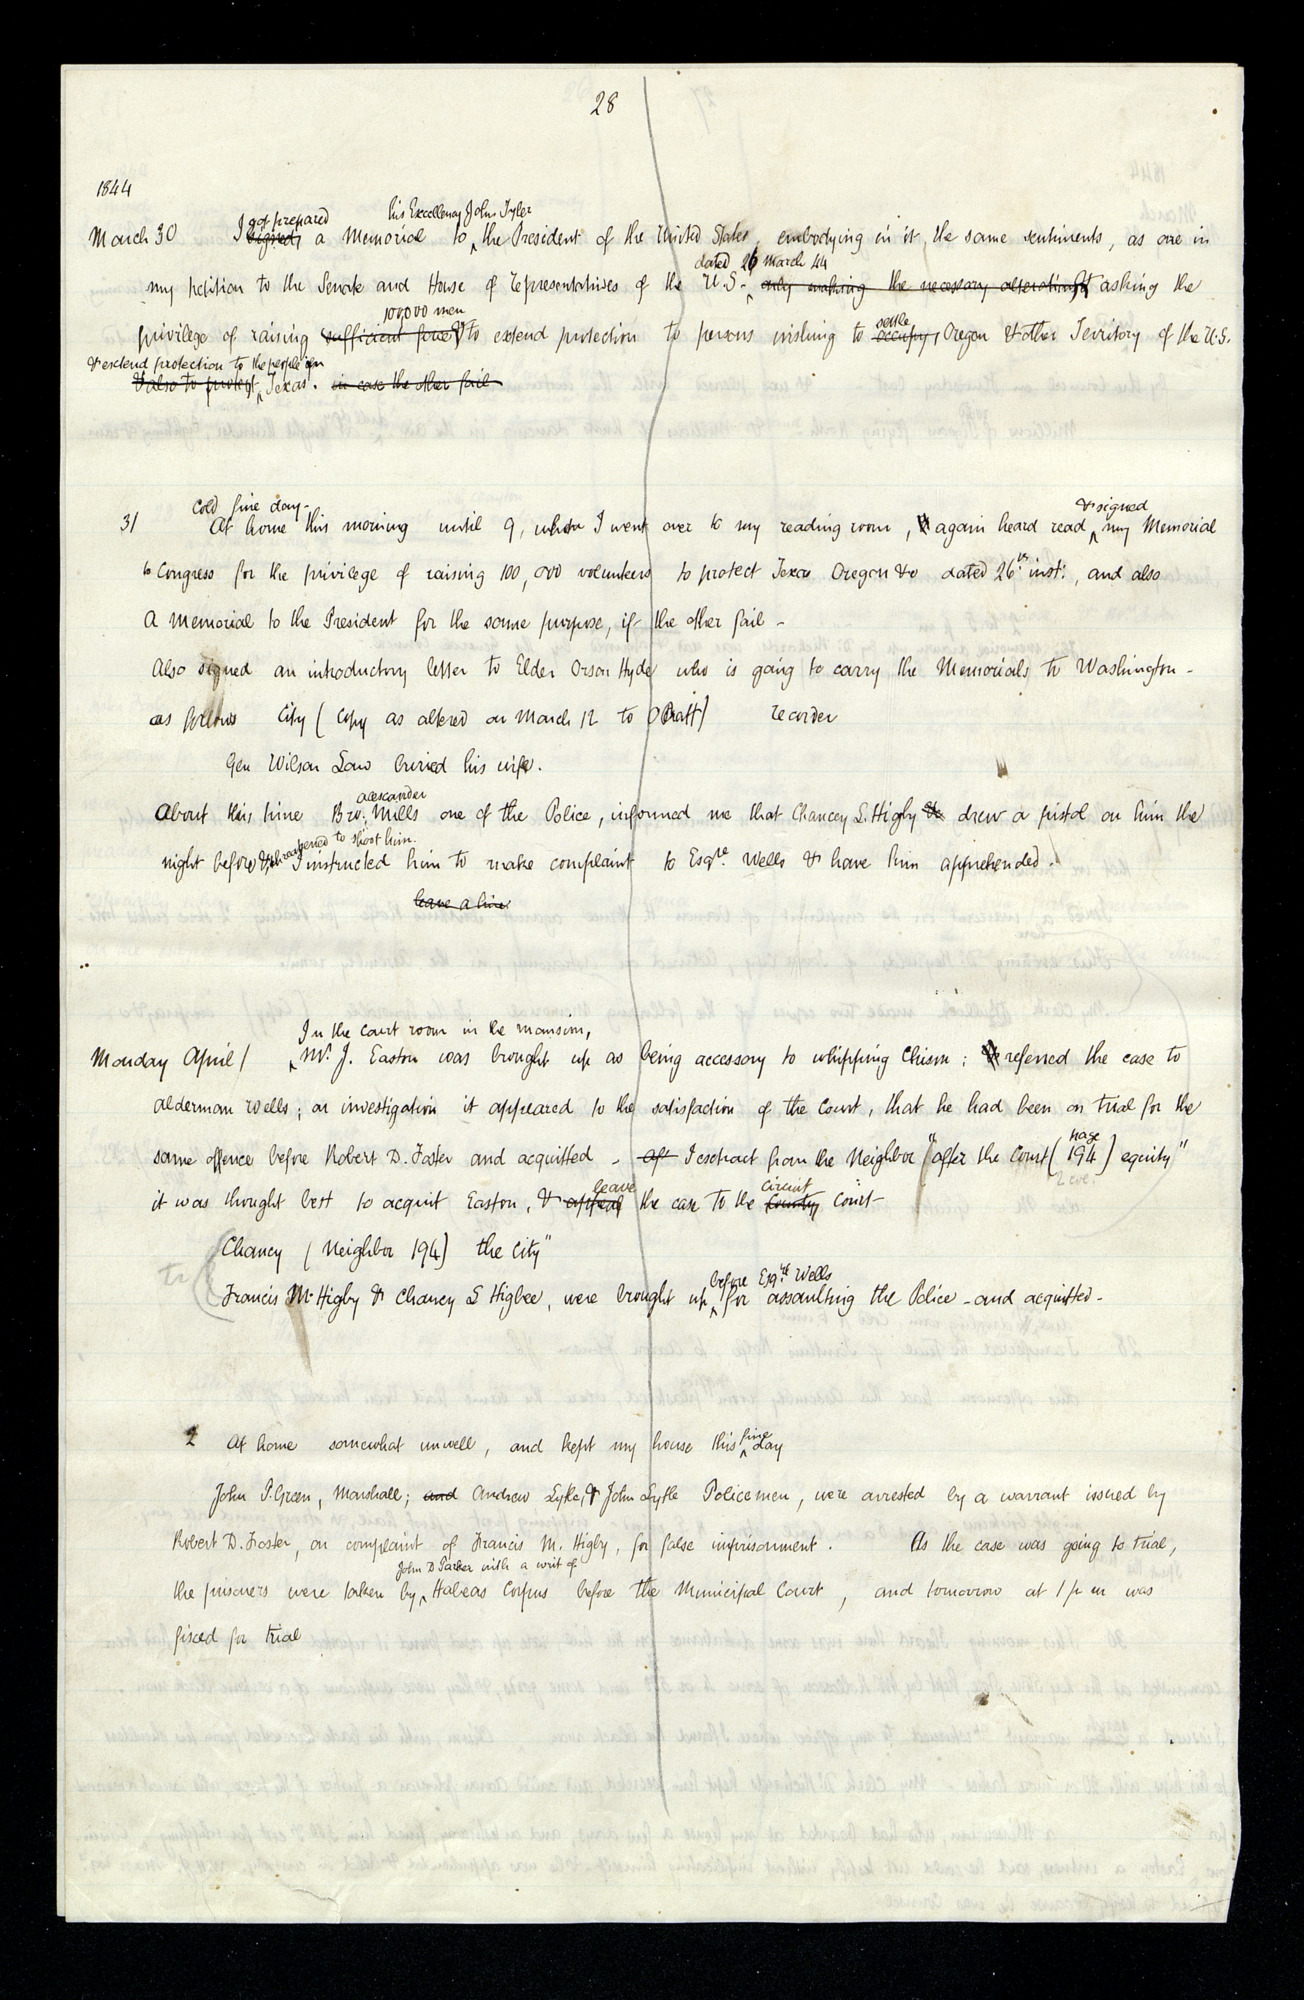 28
1844
got prepared his Excellency John Tyler
March 30 I signed, a Memorial to ^ the President of the United States, embodying in it, the same sentiments, as are in
dated 26 March 44
my petition to the Senate and House of Representatives of the U.S. ^ only making the necessary alterations, & asking the
100,000 men settle
privilege of raising sufficient force to extend protection to persons wishing to occupy, Oregon & other Territory of the U.S.
& extend protection to the people in
& also to protect ^ Texas. in case the other fail
cold fine day- & signed
31 At home this morning until 9, when I went over to my reading room, & again heard read ^ my Memorial
to Congress for the privilege of raising 100,000 volunteers to protect Texas Oregon &c dated 26th inst:, and also
a Memorial to the President for the same purpose, if the other fail -
Also signed an introductory letter to Elder Orson Hyde who is going to carry the Memorials to Washington -
as follows City ( Copy as altered on March 12 to O Pratt) recorder
Gen Wilson Law buried his wife.
alexander
About this time Bro: Mills one of the Police, informed me that Chancey L. Higby & drew a pistol on him the
threatened to shoot him.
night before, & I instructed him to make complaint to Esqre. Wells & have him apprehended.
leave a line
In the court room in the mansion,
Monday April 1 ^ Mr. J. Easton was brought up as being accessory to whipping Chism: & referred the case to
alderman Wells; on investigation it appeared to the satisfaction of the Court, that he had been on trial for the
page
same offence before Robert D. Foster and acquitted - aft I extract from the Neighbor "after the Court ( 194 ) equity"
2 col:
leave circuit
it was thought best to acquit Easton, & appeal the case to the County Court
Chancy ( Neighbor 194) the City"
before Esqre Wells
tr Francis M. Higby & Chancy L Higbee, were brought up, ^ for assaulting the Police - and acquitted -
fine
2 At home somewhat unwell, and kept my house this ^ day
John P. Green, Marshall; and Andrew Lytle, & John Lytle Policemen, were arrested by a warrant issued by
Robert D. Foster, on complaint of Francis M. Higby, for false imprisonment. As the case was going to trial,
John D Parker with a writ of
the prisoners were taken by ^ Habeas Corpus before the Municipal Court, and tomorrow at 1 p m was
fixed for trial